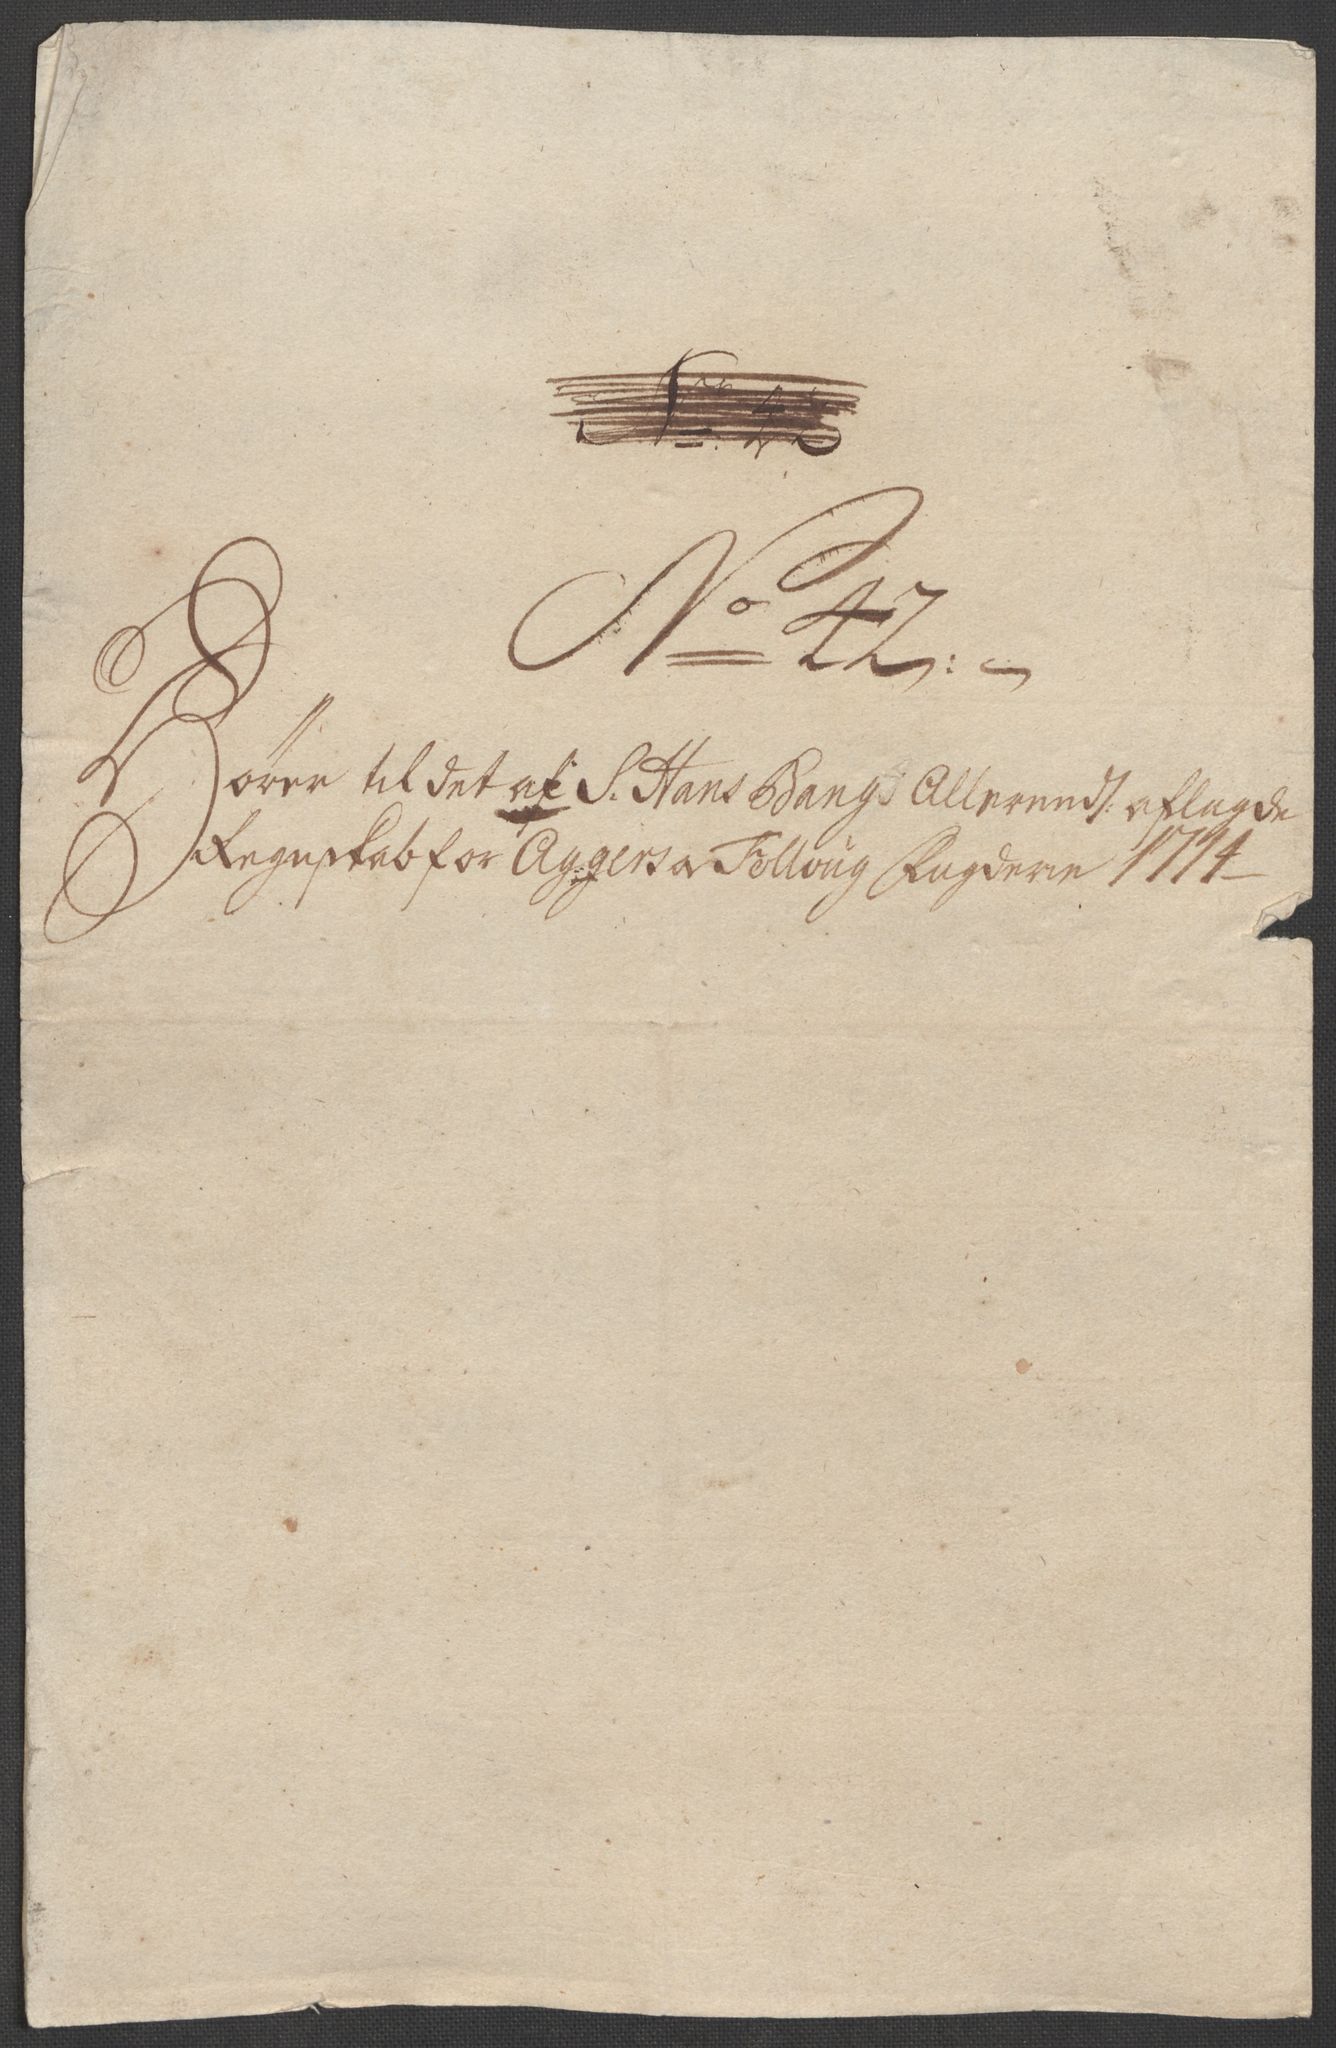 No 42:
Hörer til det af S. Hans Bangs Allerund: aflagde
Regnskab for Aggers o Follough Fogderie 1714